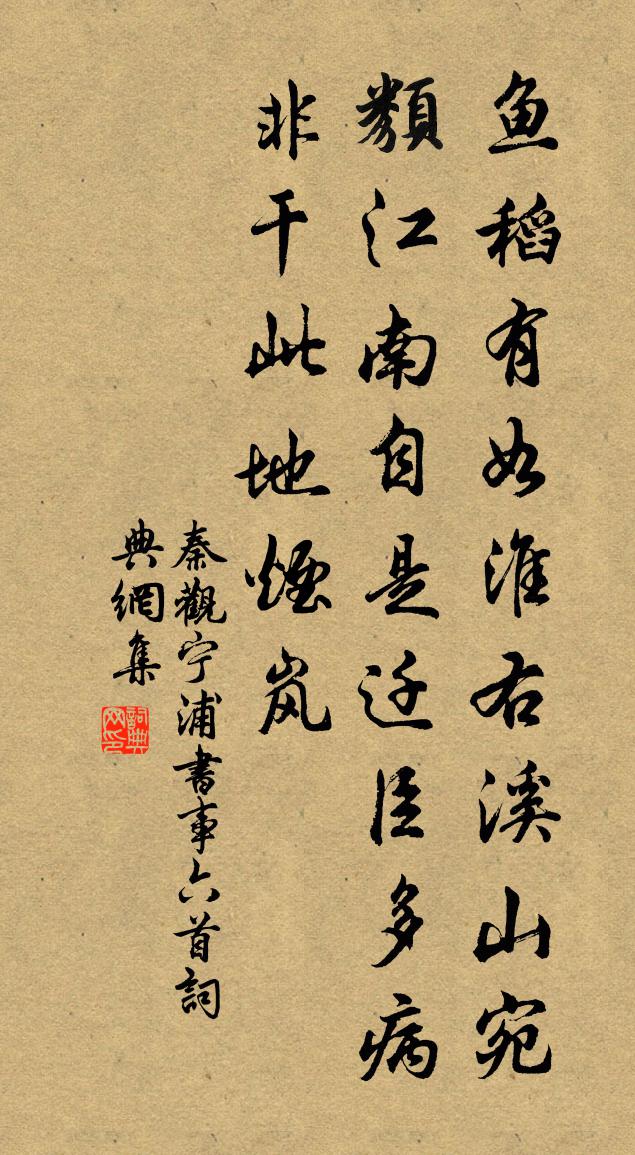 鱼稻有如淮右溪山宛
類江南自是迁臣多病
非干此地煙岚
秦觀宁浦書事六首詞
典網集
詞典网印